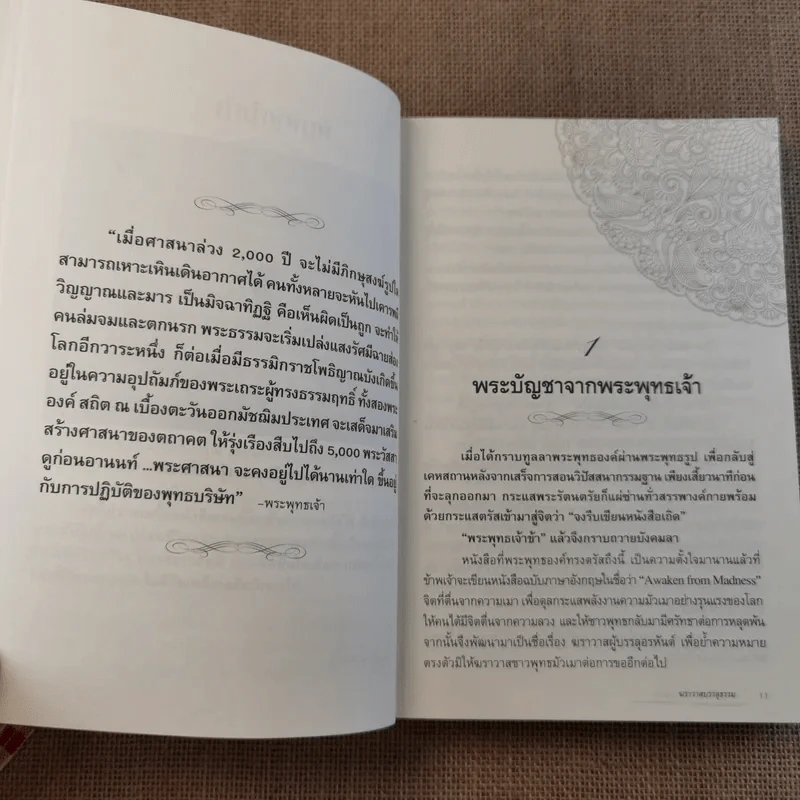 “เมื่อศาสนาล่วง 2,000 ปี จะไม่มีภิกษุสงฆ์รูปใด
สามารถเหาะเหินเดินอากาศได้ คนทั้งหลายจะหันไปเคารพผี
วิญญาณและมาร เป็นมิจฉาทิฏฐิ คือเห็นผิดเป็นถูก จะทำให้
คนล่มจมและตกนรก พระธรรมจะเริ่มเปล่งแสงรัศมีฉายส่อง
โลกอีกวาระหนึ่ง ก็ต่อเมื่อมีธรรมิกราชโพธิญาณบังเกิดขึ้น
อยู่ในความอุปถัมภ์ของพระเถระผู้ทรงธรรมฤทธิ์ ทั้งสองพระ
องค์ สถิต ณ เบื้องตะวันออกมัชฌิมประเทศ จะเสด็จมาเสริม
สร้างศาสนาของตถาคต ให้รุ่งเรืองสืบไปถึง 5,000 พระวัสสา
ดูก่อนอานนท์ ...พระศาสนา จะคงอยู่ไปได้นานเท่าใด ขึ้นอยู่
กับการปฏิบัติของพุทธบริษัท” -พระพุทธเจ้า
1
พระบัญชาจากพระพุทธเจ้า
เมื่อได้กราบทูลลาพระพุทธองค์ผ่านพระพุทธรูป เพื่อกลับสู่
เคหสถานหลังจากเสร็จการสอนวิปัสสนากรรมฐาน เพียงเสี้ยวนาทีก่อน
ที่จะลุกออกมา กระแสพระรัตนตรัยก็แผ่ซ่านทั่วสรรพางค์กายพร้อม
ด้วยกระแสตรัสเข้ามาสู่จิตว่า “จงรีบเขียนหนังสือเถิด”
“พระพุทธเจ้าข้า” แล้วจึงกราบถวายบังคมลา
หนังสือที่พระพุทธองค์ทรงตรัสถึงนี้ เป็นความตั้งใจมานานแล้วที่
ข้าพเจ้าจะเขียนหนังสือฉบับภาษาอังกฤษในชื่อว่า “Awaken from Madness”
จิตที่ตื่นจากความเมา เพื่อดุลกระแสพลังงานความมัวเมาอย่างรุนแรงของโลก
ให้คนได้มีจิตตื่นจากความลวง และให้ชาวพุทธกลับมามีศรัทธาต่อการหลุดพ้น
จากนั้นจึงพัฒนามาเป็นชื่อเรื่อง ฆราวาสผู้บรรลุอรหันต์ เพื่อย้ำความหมาย
ตรงตัวมิให้ฆราวาสชาวพุทธมัวเมาต่อการขออีกต่อไป
ฆราวาสบรรลุธรรม 11